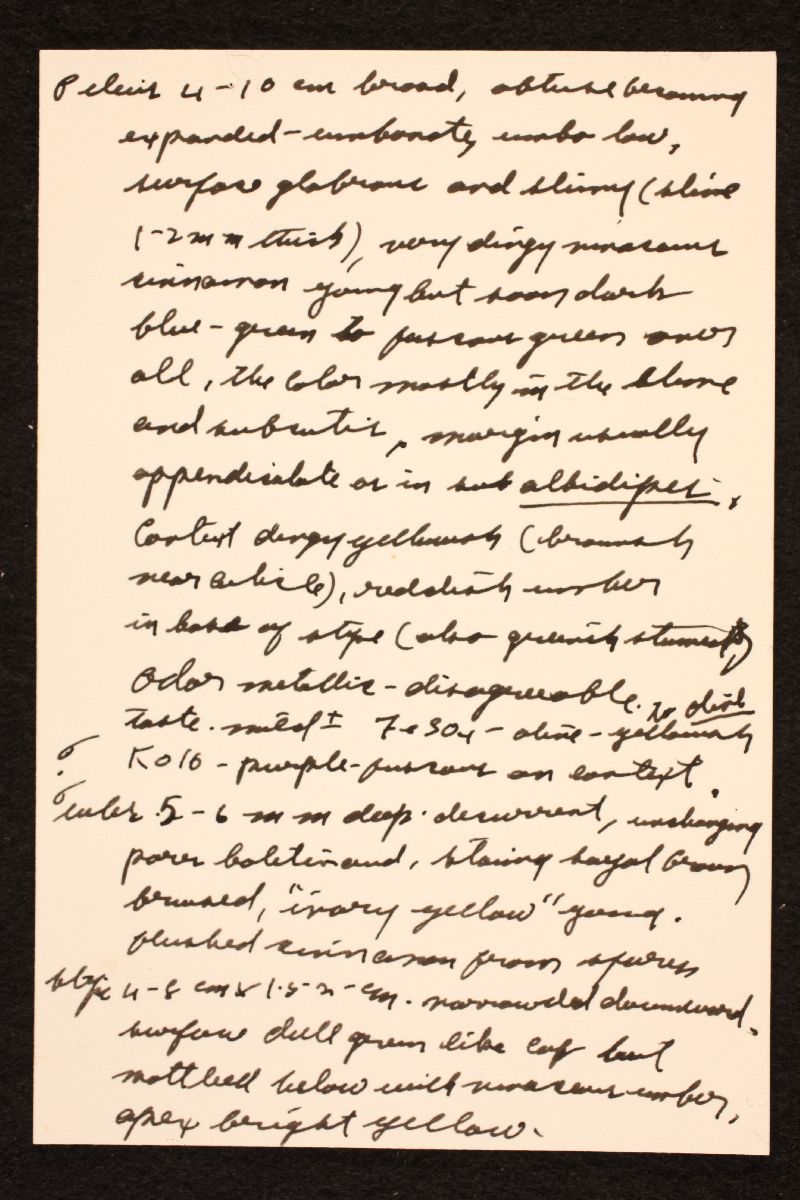 Pileus 4-10 cm broad, obtuse becoming
expanded-umbonate, umbo low,
surface glabrous and slimy (slime
1-2 mm thick), very dingy vinaceous
cinnamon young but soon dark
blue-green to fuscous green over
all, the color mostly in the slime
and subcutis, margin usually
appendiculate as in sub albidipes.
Context dingy yellowish (brownish
near cuticle), reddish umber
in base of stipe (also greenish
Odor metallic-disagreeable.
taste. mild ± FeSO4 - olive - yellowish
to dark
KOH - purple-fuscous on context.
Tubes 5-6 mm deep. decurrent, unchanging
pores boletinoid, staining sayal brown
bruised, "ivory yellow" young.
flushed cinnamon from spores
stipe 4-8 cm x 1.5-2 cm. narrowed downward.
surface dull green like cap but
mottled below with vinaceous-umber,
apex bright yellow.